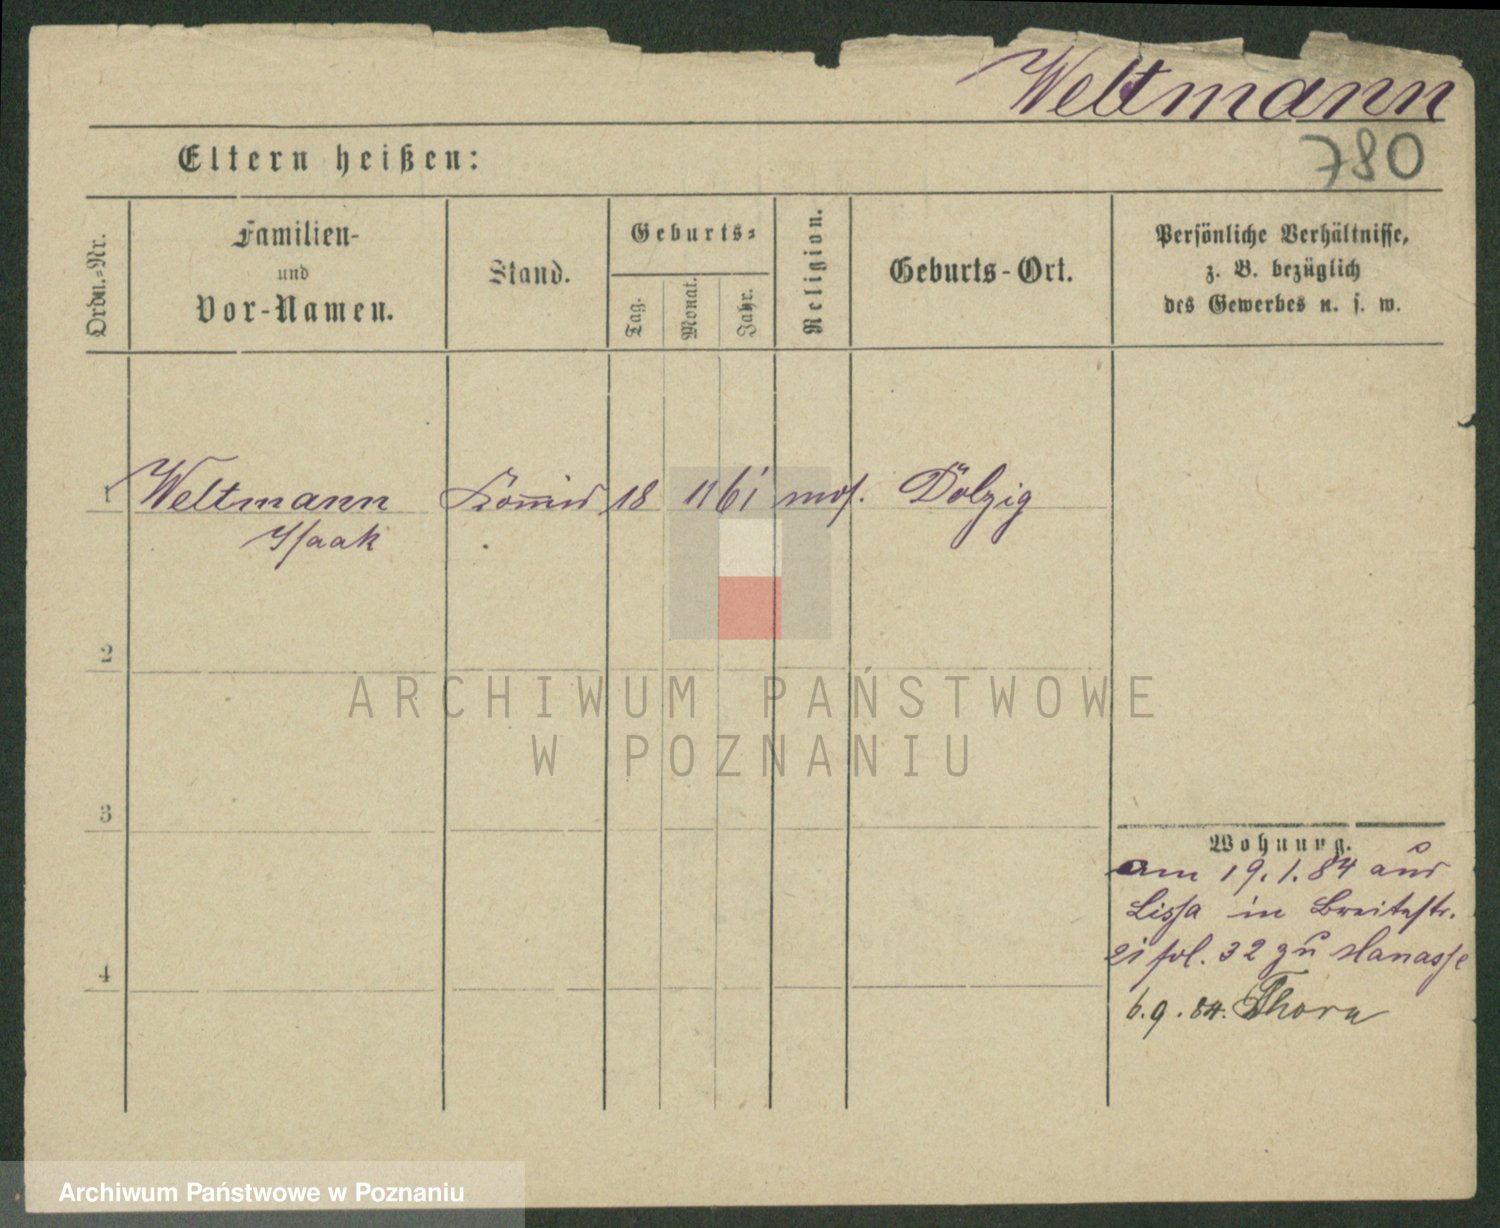 Weltmann
780
Eltern heißen:
Ordn.=Nr.
Familien-
und
Vor-Namen.
Stand.
Geburts=
Tag.
Monat.
Jahr.
Religion.
Geburts-Ort.
Persönliche Verhältnisse,
z. B. bezüglich
des Gewerbes u. s. w.
1 Weltmann 18 11 61 mos. Dolzig
Isaak
2
3
4
Wohnung.
am 19.1.84 aus
Lissa in Breitestr.
21 fol. 32 zu Manasse
6.9.84. Thorn
ARCHIWUM PAŃSTWOWE
W POZNANIU
Archiwum Państwowe w Poznaniu